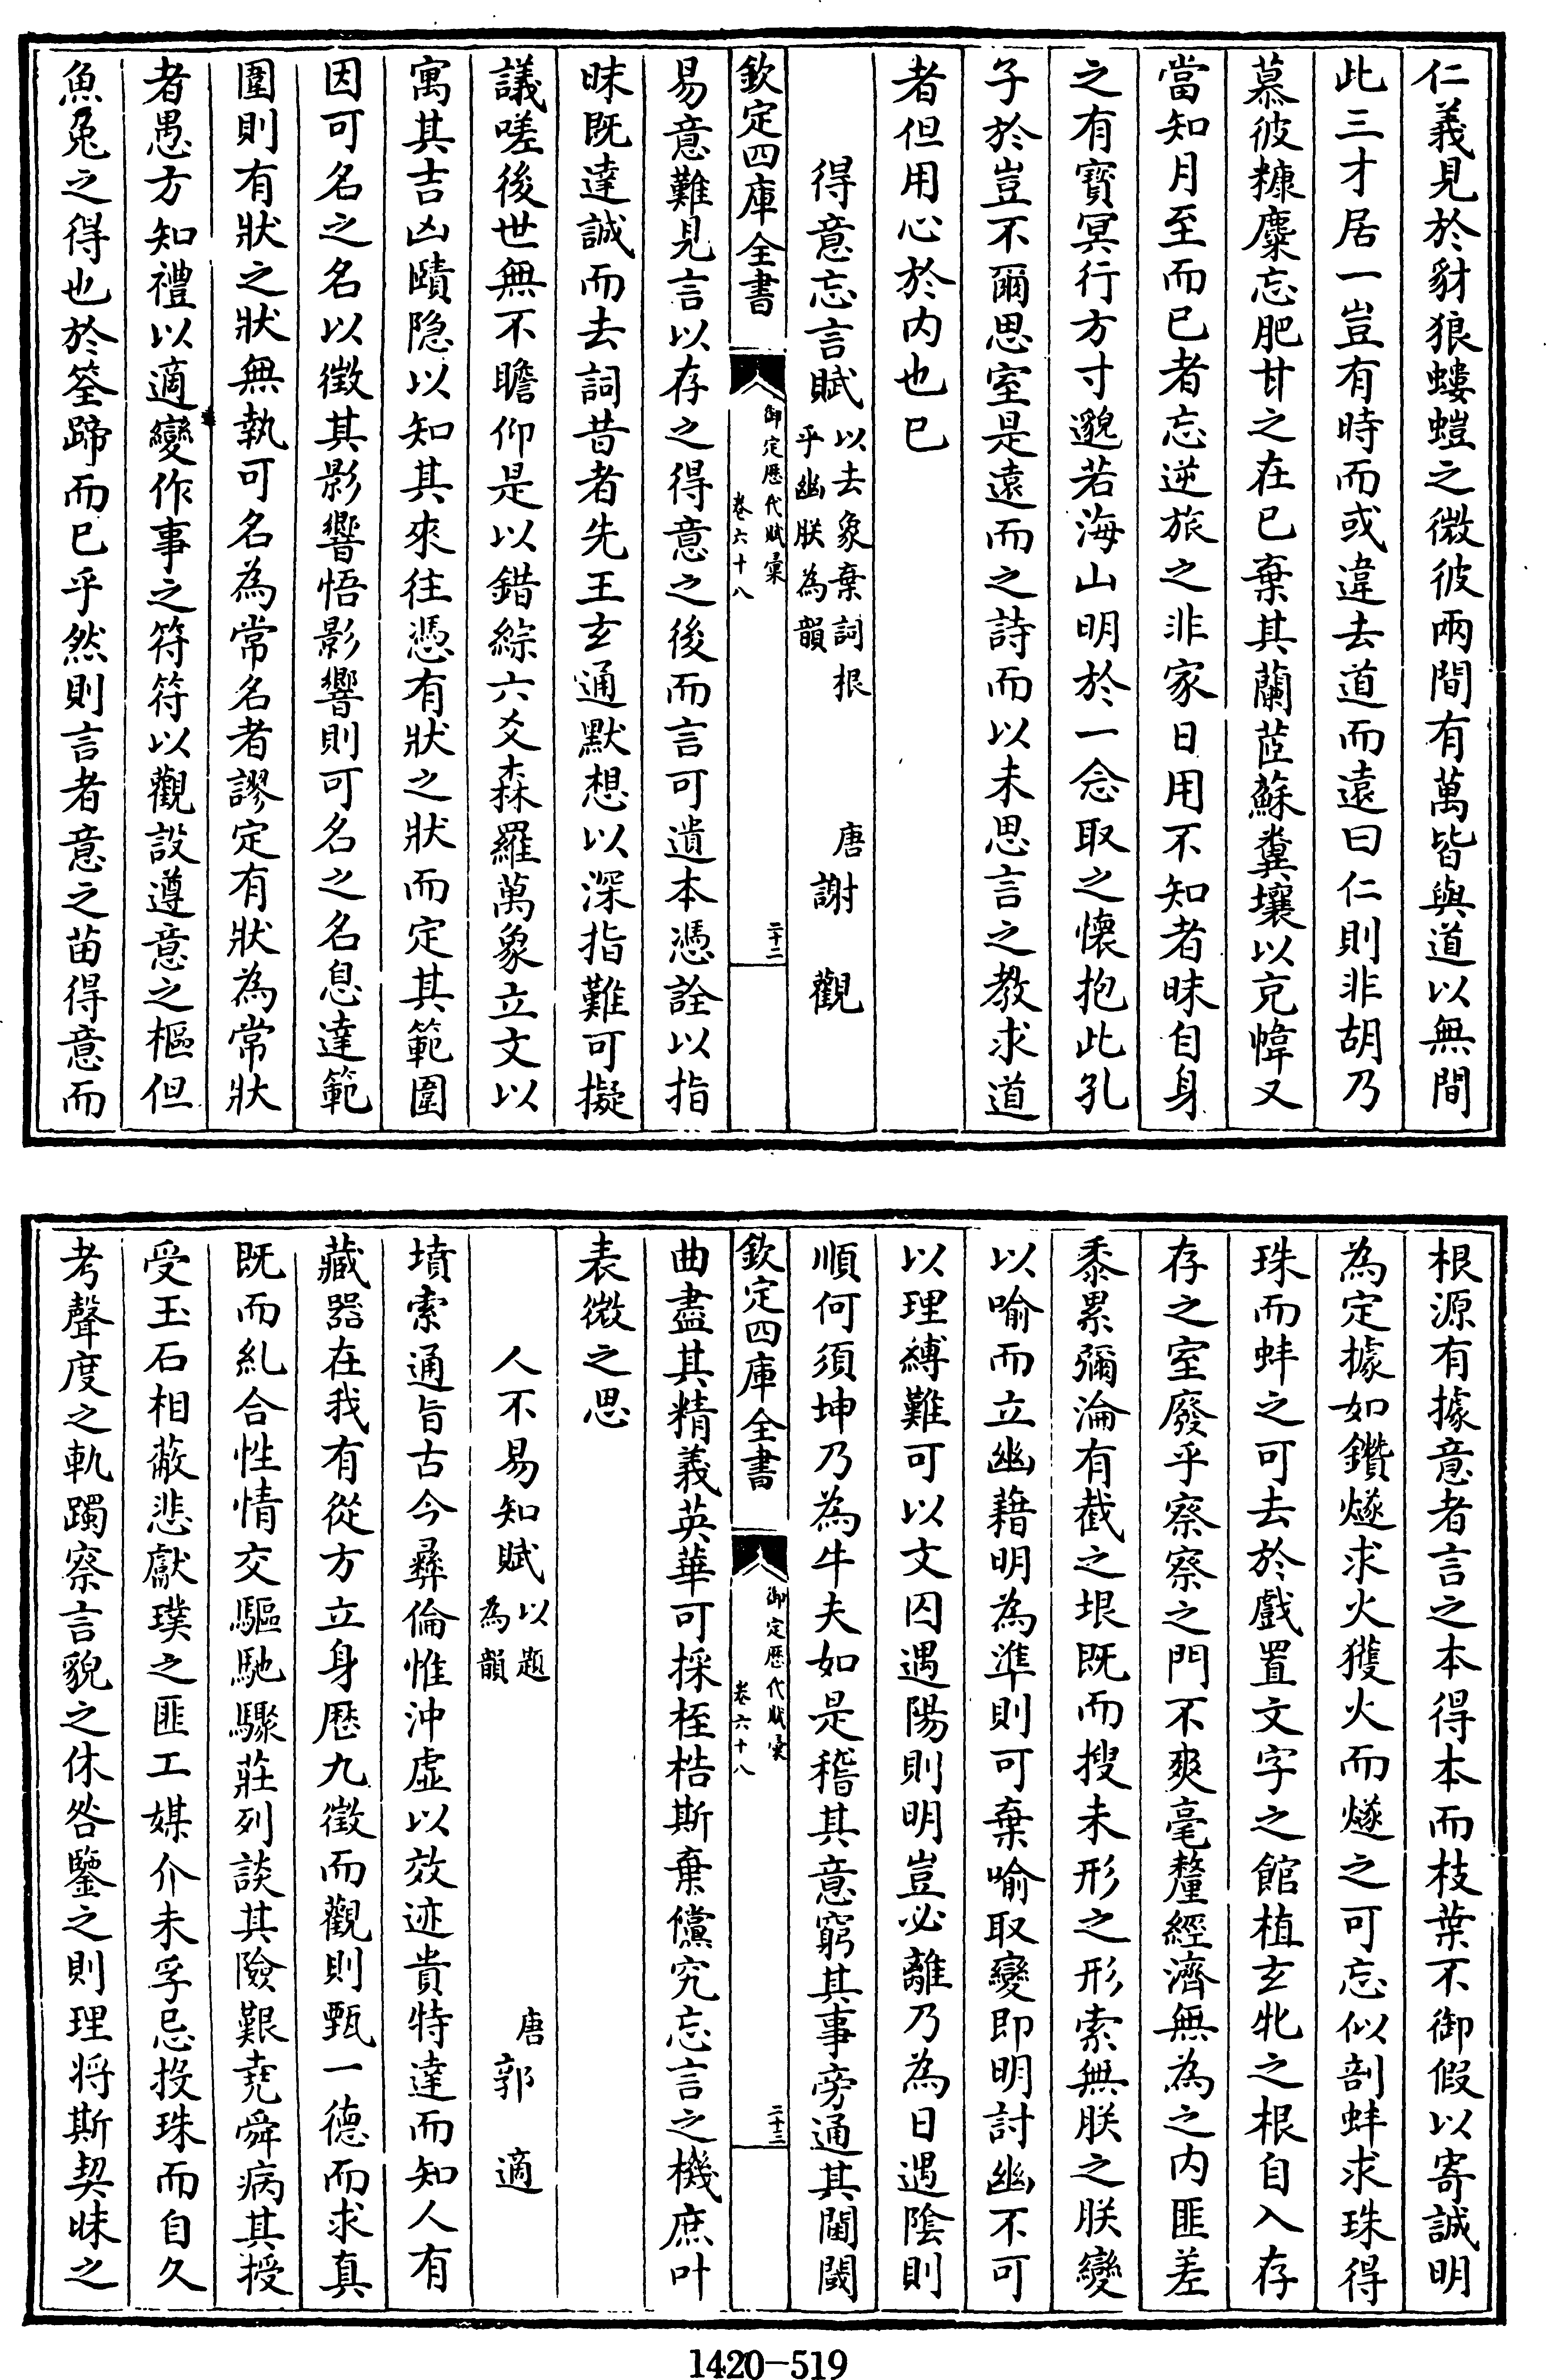 仁義見於豺狼螻螘之微彼兩間有萬皆與道以無間
此三才居一豈有時而或違去道而遠曰仁則非胡乃
慕彼糠麋忘肥甘之在已棄其蘭茝蘇糞壤以充幃又
當知月至而已者忘逆旅之非家日用不知者昧自身
之有寳冥行方寸邈若海山明於一念取之懷抱此孔
子於豈不爾思室是遠而之詩而以未思言之教求道
者但用心於内也已
得意忘言賦以去象棄詞根乎幽朕為韻 唐謝觀
欽定四庫全書 御定歴代賦彙卷六十八 二十二
易意難見言以存之得意之後而言可遺本憑詮以指
昧既達誠而去詞昔者先王玄通默想以深指難可擬
議嗟後世無不瞻仰是以錯綜六爻森羅萬象立文以
寓其吉凶賾隐以知其來往憑有狀之狀而定其範圍
因可名之名以徴其影響悟影響則可名之名息達範
圍則有狀之狀無執可名為常名者謬定有狀為常狀
者愚方知禮以適變作事之符符以觀設遵意之樞但
魚兔之得也於筌蹄而已乎然則言者意之苗得意而
根源有據意者言之本得本而枝葉不御假以寄誠明
為定據如鑽燧求火獲火而燧之可忘似剖蚌求珠得
珠而蚌之可去於戲置文字之館植玄牝之根自入存
存之室廢乎察察之門不爽毫釐經濟無為之内匪差
黍累彌淪有截之垠既而搜未形之形索無朕之朕變
以喻而立幽藉明為準則可棄喻取變即明討幽不可
以理縛難可以文囚遇陽則明豈必離乃為日遇隂則
順何須坤乃為牛夫如是稽其意窮其事旁通其閫閾
欽定四庫全書 御定歴代賦彙卷六十八 二十三
曲盡其精義英華可採桎梏斯棄儻究忘言之機庶叶
表微之思
人不易知賦以題為韻 唐郭適
墳索通旨古今彞倫惟沖虚以效迹貴特達而知人有
藏器在我有從方立身歴九徴而觀則甄一德而求真
既而糺合性情交驅馳驟莊列談其險艱堯舜病其授
受玉石相蔽悲獻璞之匪工媒介未孚忌投珠而自久
考聲度之軌躅察言貌之休咎鑒之則理将斯契昧之
1420-519